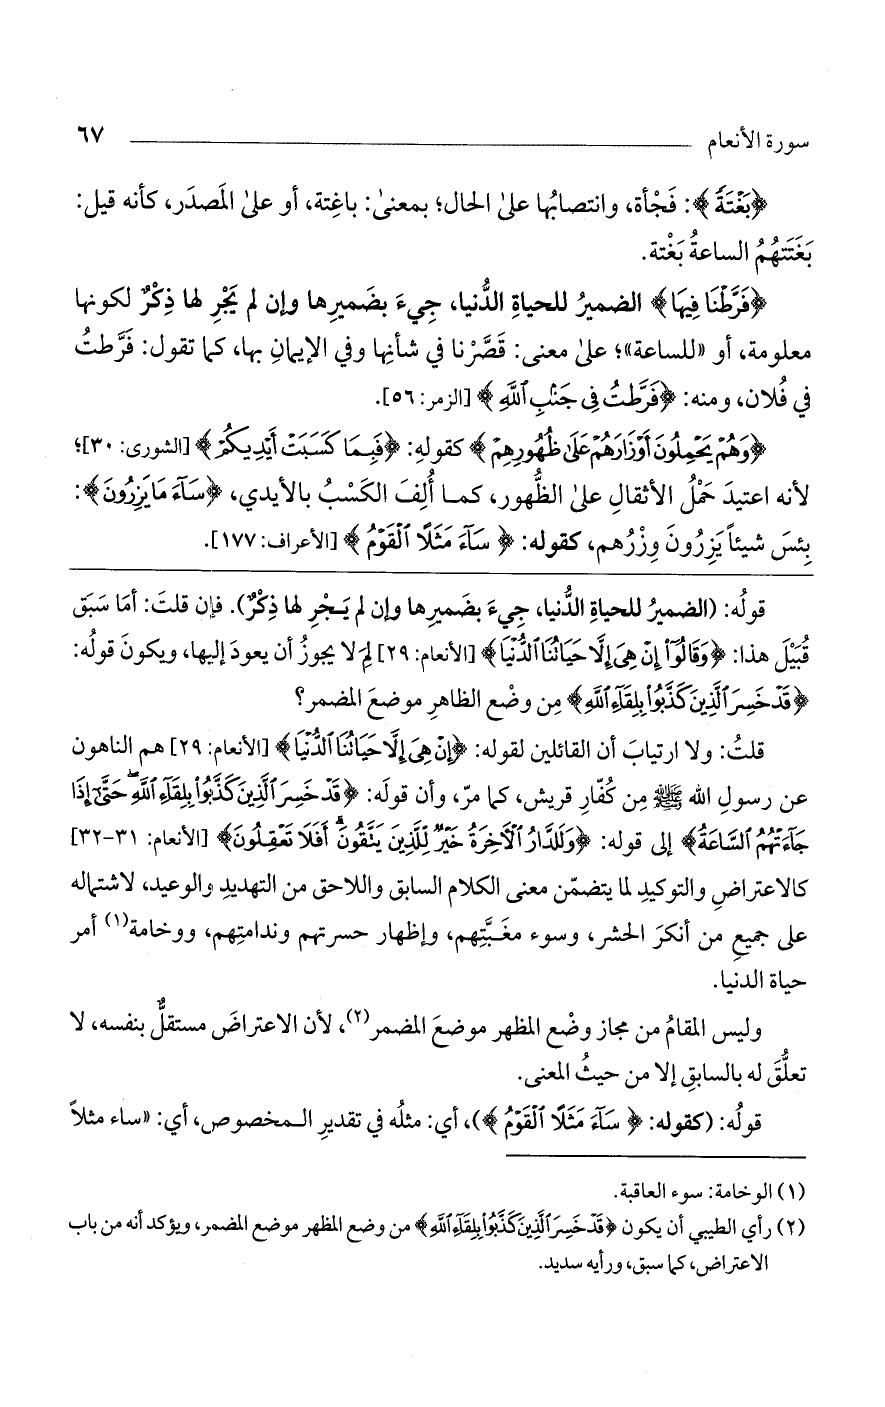 سورة الأنعام ٦٧
﴿بَغْتَةً﴾: فَجْأة، وانتصابُها علىٰ الحال؛ بمعنىٰ: باغِتة، أو علىٰ المَصدَر، كأنه قيل:
بَغَتَتهُمُ الساعةُ بَغْتة.
﴿فَرَّطْنَا فِيهَا﴾ الضميرُ للحياةِ الدُّنيا، جِيءَ بضَميرِها وإن لم يَجْرِ لها ذِكْرٌ لكونها
معلومة، أو «للساعة»؛ علىٰ معنى: قَصَّرْنا في شأنِها وفي الإيمانِ بها، كما تقول: فَرَّطتُ
في فُلان، ومنه: ﴿فَرَّطتُ فِي جَنۢبِ ٱللَّهِ﴾ [الزمر: ٥٦].
﴿وَهُمْ يَحْمِلُونَ أَوْزَارَهُمْ عَلَىٰ ظُهُورِهِمْ﴾ كقولهِ: ﴿فَبِمَا كَسَبَتْ أَيْدِيكُمْ﴾ [الشورى: ٣٠]؛
لأنه اعتيدَ حَمْلُ الأثقالِ علىٰ الظُّهور، كما أُلِفَ الكَسْبُ بالأيدي، ﴿سَآءَ مَا يَزِرُونَ﴾:
بِئسَ شيئاً يَزِرُونَ وِزْرُهم، كقوله: ﴿سَآءَ مَثَلًا ٱلْقَوْمُ﴾ [الأعراف: ١٧٧].
قولُه: (الضميرُ للحياةِ الدُّنيا، جِيءَ بضَميرِها وإن لم يَجْرِ لها ذِكْرٌ). فإن قلتَ: أمَا سَبَق
قُبَيْلَ هذا: ﴿وَقَالُوٓا۟ إِنْ هِىَ إِلَّا حَيَاتُنَا ٱلدُّنْيَا﴾ [الأنعام: ٢٩] لِمَ لا يجوزُ أن يعودَ إليها، ويكونَ قولُه:
﴿قَدْ خَسِرَ ٱلَّذِينَ كَذَّبُوا۟ بِلِقَآءِ ٱللَّهِ﴾ مِن وضْع الظاهرِ موضعَ المضمر؟
قلتُ: ولا ارتيابَ أن القائلين لقوله: ﴿إِنْ هِىَ إِلَّا حَيَاتُنَا ٱلدُّنْيَا﴾ [الأنعام: ٢٩] هم الناهون
عن رسولِ الله ﷺ مِن كُفّارِ قريش، كما مرّ، وأن قولَه: ﴿قَدْ خَسِرَ ٱلَّذِينَ كَذَّبُوا۟ بِلِقَآءِ ٱللَّهِ ۖ حَتَّىٰٓ إِذَا
جَآءَتْهُمُ ٱلسَّاعَةُ﴾ إلى قوله: ﴿وَلَلدَّارُ ٱلْآخِرَةُ خَيْرٌ لِّلَّذِينَ يَتَّقُونَ ۗ أَفَلَا تَعْقِلُونَ﴾ [الأنعام: ٣١-٣٢]
كالاعتراضِ والتوكيدِ لما يتضمّن معنى الكلام السابق واللاحق من التهديدِ والوعيد، لاشتماله
على جميعِ من أنكرَ الحشر، وسوء مغَبَّتِهم، وإظهار حسرتهم وندامتِهم، ووخامة(١) أمر
حياة الدنيا.
وليس المقامُ من مجاز وضْع المظهر موضعَ المضمر(٢)، لأن الاعتراضَ مستقلٌّ بنفسه، لا
تعلُّقَ له بالسابقِ إلا من حيثُ المعنى.
قولُه: (كقوله: ﴿سَآءَ مَثَلًا ٱلْقَوْمُ﴾)، أي: مثلُه في تقديرِ المخصوص، أي: «ساء مثلاً
(١) الوخامة: سوء العاقبة.
(٢) رأي الطيبي أن يكون ﴿قَدْ خَسِرَ ٱلَّذِينَ كَذَّبُوا۟ بِلِقَآءِ ٱللَّهِ﴾ من وضع المظهر موضع المضمر، ويؤكد أنه من باب
الاعتراض، كما سبق، ورأيه سديد.